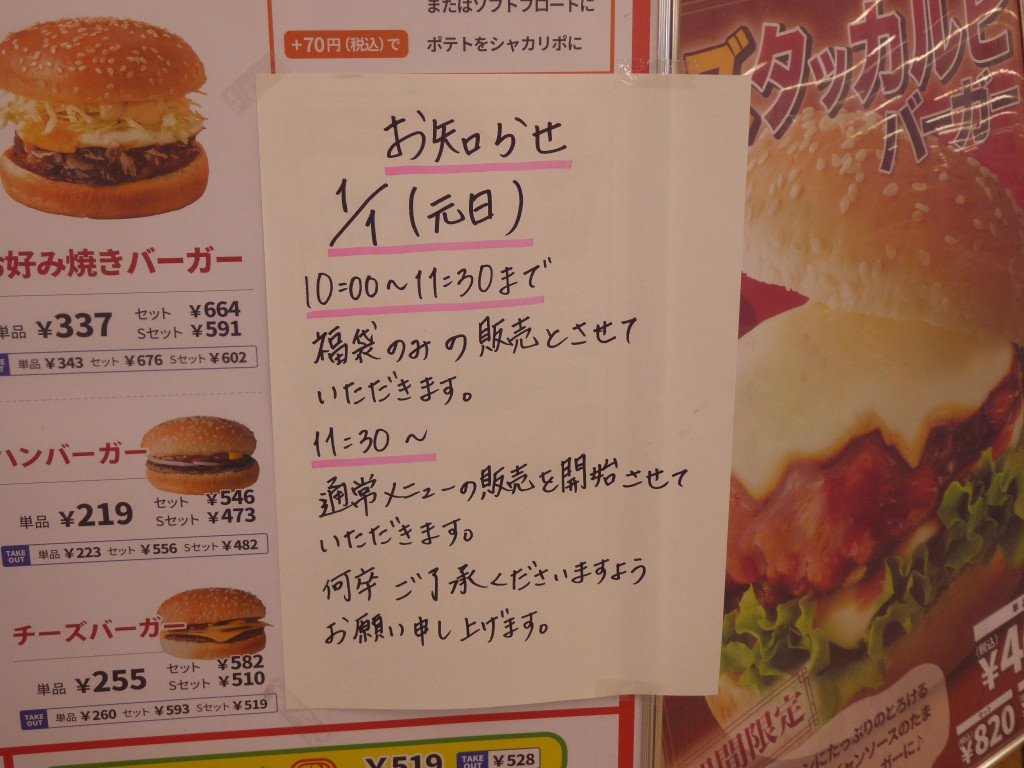 またはソフトフロートに
+70円(税込)で
ポテトをシャカリポに
お知らせ
1/1(元日)
10:00〜11:30まで
福袋のみの販売とさせて
いただきます。
11:30〜
通常メニューの販売を開始させて
いただきます。
何卒ご了承くださいますよう
お願い申し上げます。
お好み焼きバーガー
単品 ¥337
セット ¥664
Sセット ¥591
単品 ¥343 セット ¥676 Sセット ¥602
ハンバーガー
単品 ¥219
セット ¥546
Sセット ¥473
TAKE OUT 単品 ¥223 セット ¥556 Sセット ¥482
チーズバーガー
単品 ¥255
セット ¥582
Sセット ¥510
TAKE OUT 単品 ¥260 セット ¥593 Sセット ¥519
¥519
TAKE OUT ¥528
タッカルビ
バーガー
期間限定
にたっぷりのとろける
ソースのたま
ガーに♪
(税込)
¥4
¥820